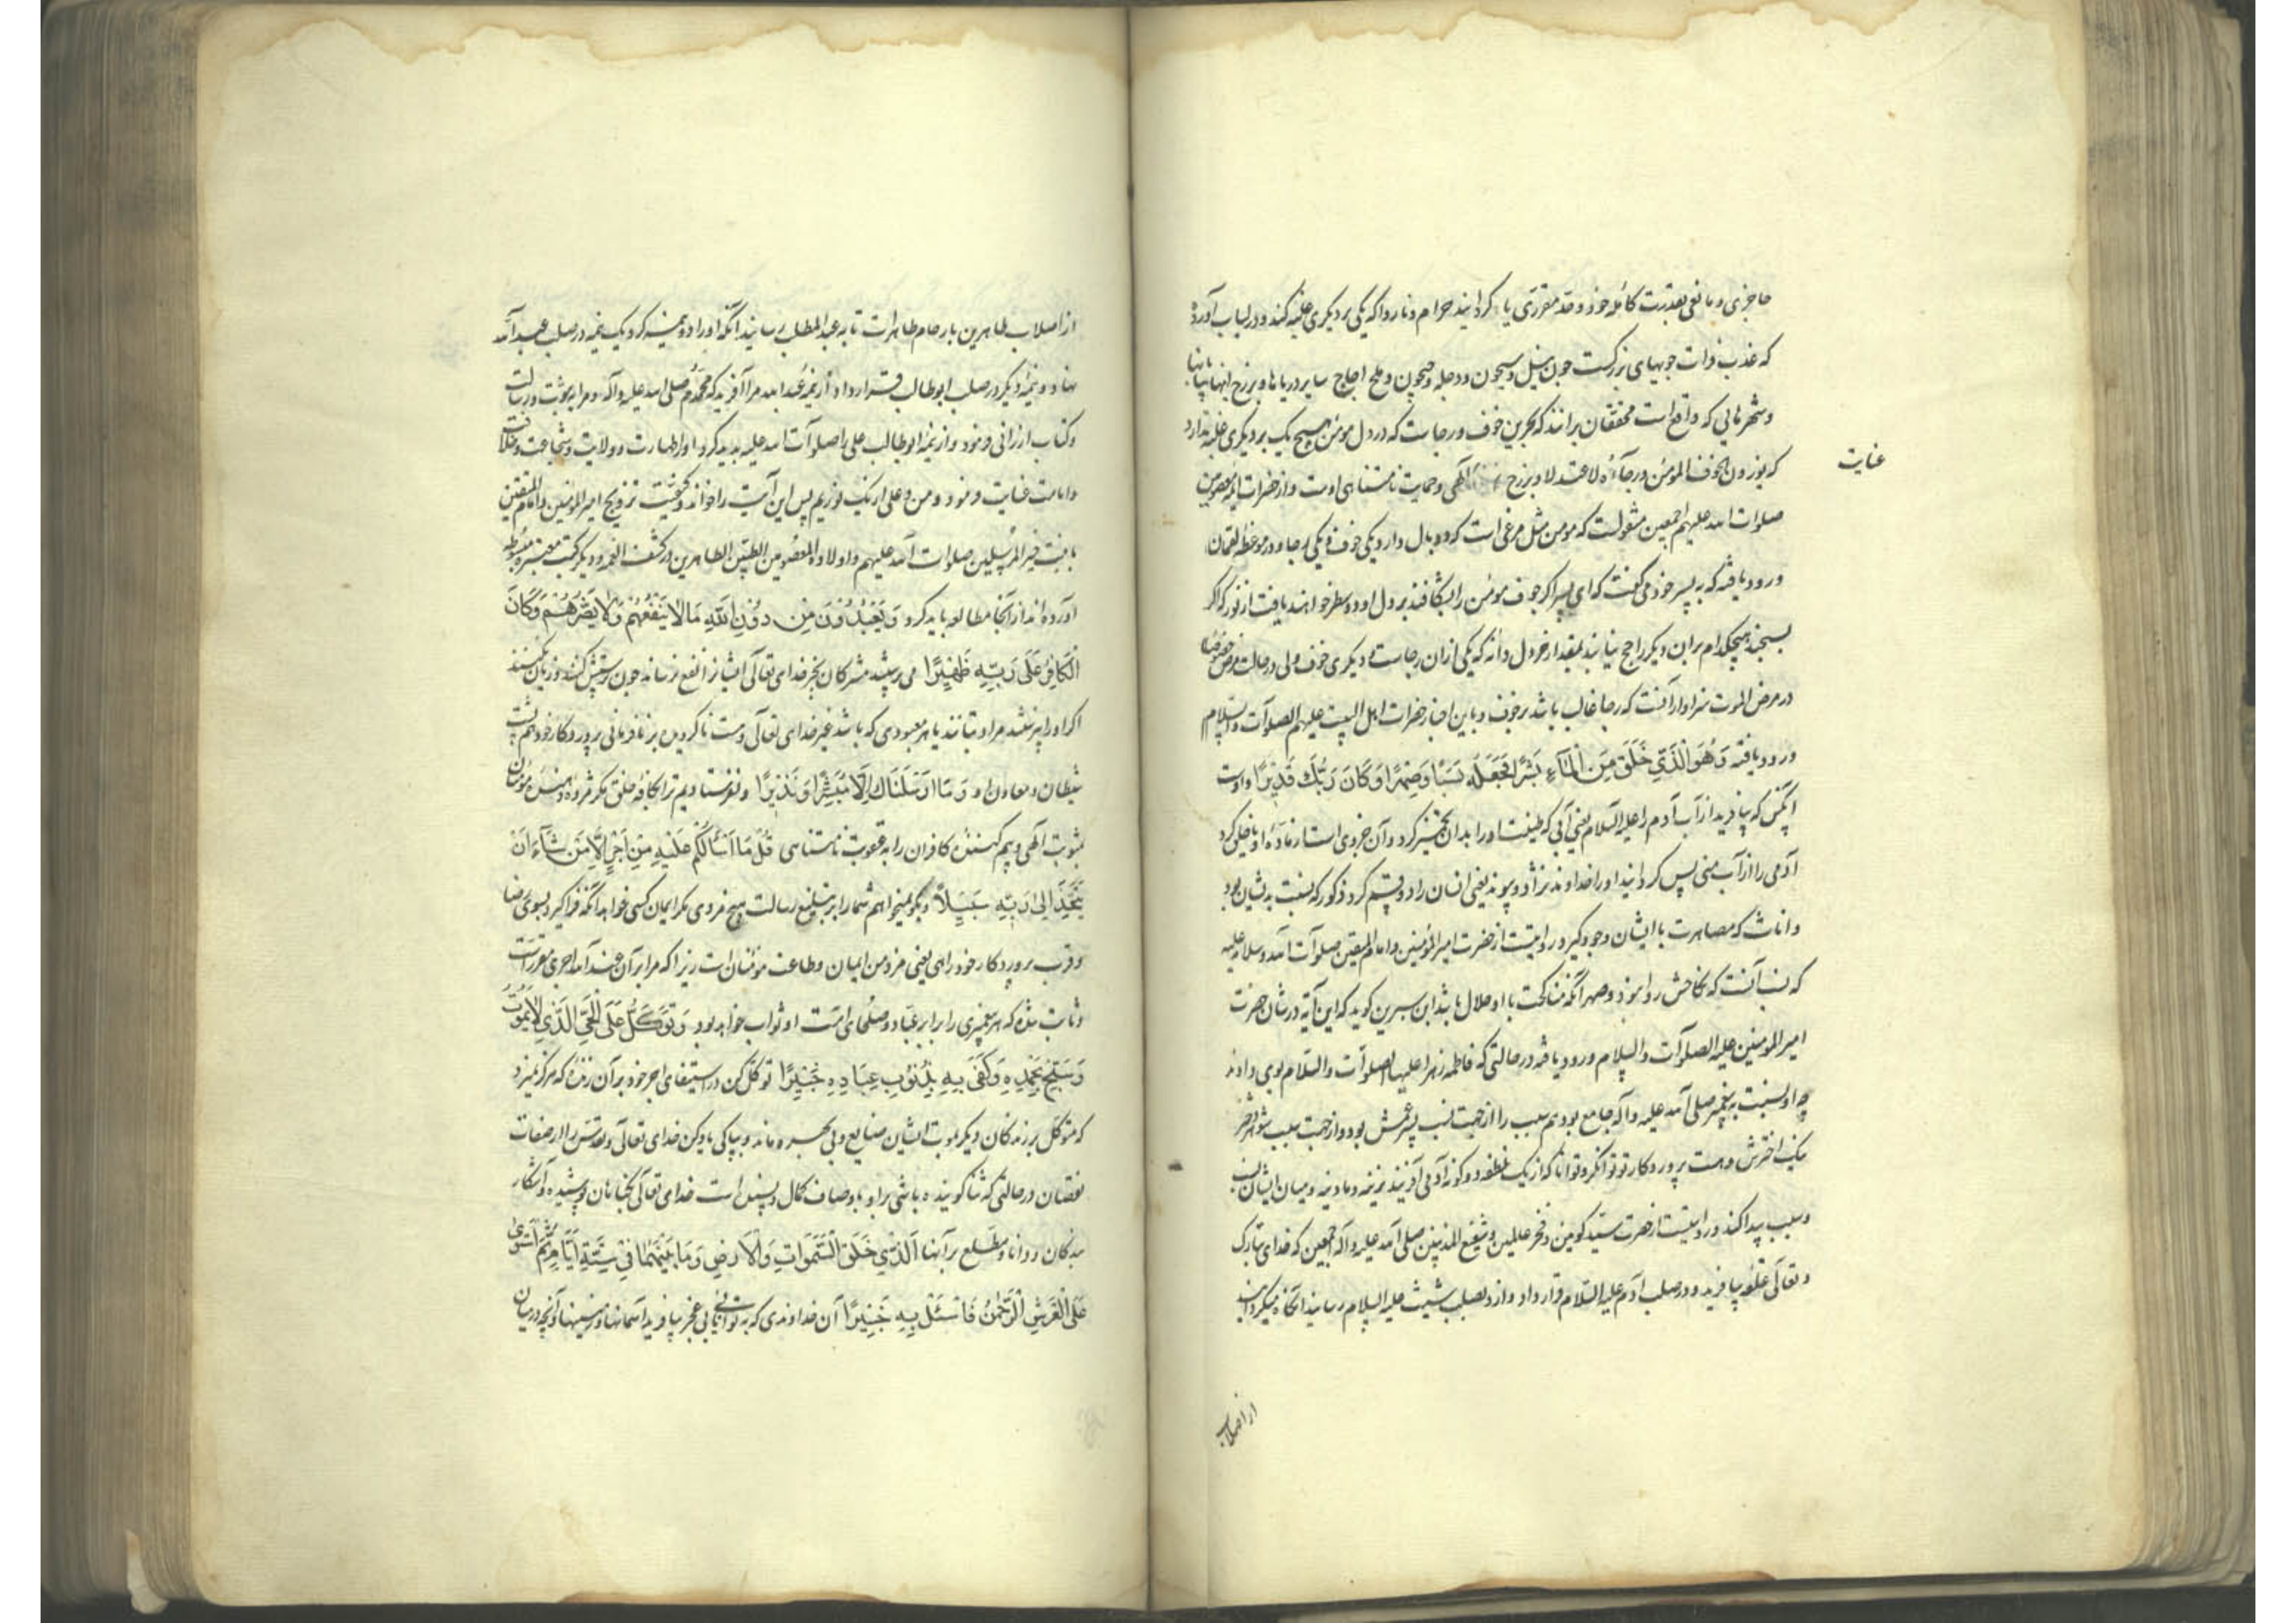 حاجزی و مانعی بقدرت کامله خود و حد مقرری یا کردانید حرام و ناروا که یکی بر دیکری غلبه کند و در لباب آورده
که عذب فرات جویهای بزرکست چون نیل و سیحون و دجله و جیحون و ملح اجاج سایر دریاها و برزخ انها بیابانها
و شهرهایی که واقع است محققان برانند که بحرین خوف و رجاست که در دل مؤمن هیچ یک بر دیکری غلبه ندارد
که لو وزن خوف المؤمن و رجآؤه لاعتدلا و برزخ الهی و حمایت نامتناهی اوست و از حضرات ائمه معصومین
عنایت
صلوات الله علیهم اجمعین منقولست که مومن مثل مرغی است که دو بال دارد یکی خوف و یکی رجا و در موعظه لقمان
ورود یافته که به پسر خود می کفت که ای پسر اکر جوف مؤمن را بشکافند بر دل او دو سطر خواهند یافت از نور که اکر
بسنجند هیچکدام بران دیکر راجح نیاید بمقدار خردل دانه که یکی ازان رجاست و دیکری خوف ولی در حالت مرض خصوصا
در مرض الموت سزاوار آنست که رجا غالب باشد بر خوف و باین اخبار حضرات اهل البیت علیهم الصلوات والسلام
ورود یافته وَهُوَ الَّذی خَلَقَ مِنَ الْمَآءِ بَشَرًا فَجَعَلَهُ نَسَبًا وَصِهْرًا وَكَانَ رَبُّكَ قَدِیرًا و اوست
انکس که بیافرید از آب آدم را علیه السلام یعنی آبی که طینت او را بدان تخمیر کرد و آن جزوی است از ماده او یا خلق کرد
آدمی را از آب منی پس کردانید او را خداوند نژاد و پیوند یعنی انسان را دو قسم کرد ذکور که نسبت بدیشان بود
و اناث که مصاهرت با ایشان وجود کیرد روایتست از حضرت امیر المؤمنین و امام المتقین صلوات الله و سلامه علیه
که نسب آنست که نکاحش روا نبود و صهر آنکه مناکحت با او حلال باشد ابن سیرین کوید که این آیه در شان حضرت
امیر المومنین علیه الصلوات والسلام ورود یافته در حالتی که فاطمه زهرا علیها الصلوات والسلام بوی دادند
چه او نسبت به پیغمبر صلی الله علیه و آله جامع بود هم سبب را از جهت نسب پسر عمش بود و از جهت سبب شوهر دختر
نیک اخترش و هست پروردکار تو توانکر و توانا که از یک نطفه دو کونه آدمی آفریند نرینه و مادینه و میان ایشان نسب
و سبب پیدا کند و روایتست از حضرت سید کونین و فخر عالمین و شفیع المذنبین صلی الله علیه و آله اجمعین که خدای تبارک
و تعالی نطفه بیافرید و در صلب آدم علیه السلام قرار داد و از و بصلب شیث علیه السلام رسانید انکاه میکردانید
از اصلاب
از اصلاب طاهرین بارحام طاهرات تا به عبد المطلب رسانید آنکه او را دو نیمه کرد یک نیمه در صلب عبد الله
نهاد و نیمه دیکر در صلب ابو طالب قرار داد و از نیمه عبد الله مرا آفرید که محمدم صلی الله علیه و آله و مرا به نبوت و رسالت
و کتاب ارزانی فرمود و از نیمه ابو طالب علی را صلوات الله علیه پدید کرد و او را طهارت و ولایت و شجاعت و خلافت
و امامت عنایت فرمود و من و علی از یک نوریم پس این آیت را خواند و کیفیت تزویج امیر المؤمنین و امام المتقین
با بنت خیر المرسلین صلوات الله علیهم و اولاده المعصومین الطیبین الطاهرین در کشف الغمه و دیکر کتب معتبره مبسوطه
آورده اند از آنجا مطالعه باید کرد وَیَعْبُدُونَ مِن دُونِ اللَّهِ مَا لَا یَنْفَعُهُمْ وَلَا یَضُرُّهُمْ وَكَانَ
الْكَافِرُ عَلَی رَبِّهِ ظَهِیرًا می پرستند مشرکان بجز خدای تعالی آنچه ایشانرا نفع نرساند چون پرستش کنند و زیان نکند
اکر او را نپرستند مراد بتانند یا هر معبودی که باشد غیر خدای تعالی و هست ناکرویده بر نافرمانی پروردکار خود هم پشت
شیطان و معاون او وَمَا اَرْسَلْنَاكَ اِلَّا مُبَشِّرًا وَنَذِیرًا و نفرستادیم ترا بکافه خلق مکر مژده دهنده مؤمنان
بمثوبت الهی و بیم کننده کافران را به عقوبت نامتناهی قُلْ مَا اَسْأَلُكُمْ عَلَیْهِ مِنْ اَجْرٍ اِلَّا مَنْ شَآءَ اَنْ
یَتَّخِذَ اِلَی رَبِّهِ سَبِیلًا بکو نمیخواهم شما را بر تبلیغ رسالت هیچ مزدی مکر ایمان کسی خواهد آنکه فرا کیرد بسوی رضا
و قرب پروردکار خود راهی یعنی مزد من ایمان و طاعت مؤمنان است زیرا که مرا بر آن عند الله اجری مقررست
و ثابت شده که هر پیغمبری را برابر عباد و صلحای امت او ثواب خواهد بود وَتَوَكَّلْ عَلَی الْحَیِّ الَّذِی لَا یَمُوتُ
وَسَبِّحْ بِحَمْدِهِ وَكَفَی بِهِ بِذُنُوبِ عِبَادِهِ خَبِیرًا توکل کن در استیفای اجر خود بر آن زنده که هرکز نمیرد
که متوکل بر زندکان دیکر بموت ایشان ضایع و بی بهره ماند و بپاکی یاد کن خدای تعالی و تقدس را از صفات
نقصان در حالتی که ثنا کوینده باشی بر او باوصاف کمال و بسنده است خدای تعالی بکناهان پوشیده و آشکار
بندکان و دانا و مطلع بر آنها اَلَّذِی خَلَقَ السَّمَوَاتِ وَالْاَرْضَ وَمَا بَیْنَهُمَا فِی سِتَّةِ اَیَّامٍ ثُمَّ اسْتَوَی
عَلَی الْعَرْشِ الرَّحْمٰنُ فَاسْئَلْ بِهِ خَبِیرًا آن خداوندی که به توانایی بی عجز بیافرید آسمانها و زمینها و آنچه در میان